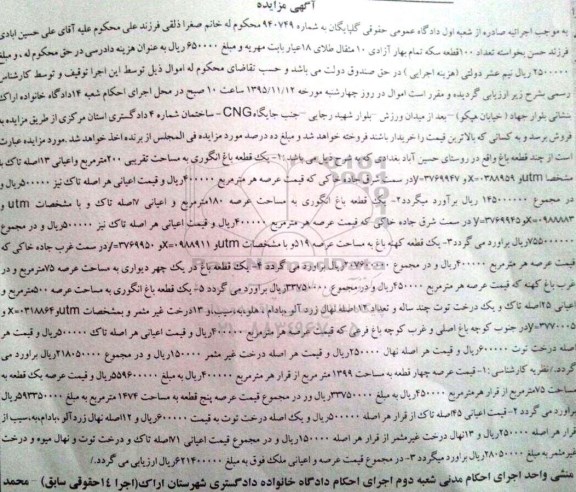 آگهی مزایده
به موجب اجرائیه صادره از شعبه اول دادگاه عمومی حقوقی گلپایگان به شماره ۹۴۰۷۴۹ محکوم له خانم صغرا ذلقی فرزند علی محکوم علیه آقای علی حسین ابادی
فرزند حسن بخواسته تعداد ۱۰۰قطعه سکه تمام بهار آزادی ۱۰ مثقال طلای ۱۸عیار بابت مهریه و مبلغ ۶۵۰۰۰۰ ریال به عنوان هزینه دادرسی در حق محکوم له . و مبلغ
۲۵۰۰۰۰۰ ریال نیم عشر دولتی (هزینه اجرایی ) در حق صندوق دولت می باشد و حسب تقاضای محکوم له اموال ذیل توسط این اجرا توقیف و توسط کارشناس
رسمی بشرح زیر ارزیابی گردیده و مقرر است اموال در روز چهارشنبه مورخه ۱۳۹۵/۱۱/۱۲ ساعت ۱۰ صبح در محل اجرای احکام شعبه ۱۴دادگاه خانواده اراک
نشانی بلوار جهاد ( خیابان هپکو) – بعد از میدان ورزش –بلوار شهید رجایی –جنب جایگاهCNG – ساختمان شماره ۴ دادگستری استان مرکزی از طریق مزایده به
فروش برسد و به کسانی که بالاترین قیمت را خریدار باشند فروخته خواهد شد و مبلغ ده درصد مورد مزایده فی المجلس از برنده اخذ خواهد شد .مورد مزایده عبارت
است از چند قطعه باغ واقع در روستای حسین آباد بغدادی که به شرح ذیل می باشد :۱- یک قطعه باغ انگوری به مساحت تقریبی ۲۰۰مترمربع واعیانی ۱۳اصله تاک با
مشخصا utmو x=۰۳۸۸۹۵۹و y=۳۷۶۹۹۴۷در سمت شرق جاده خاکی که قیمت عرصه هر مترمربع ۴۰۰۰۰۰ریال و قیمت اعیانی هر اصله تاک نیز ۵۰۰۰۰۰ریال و
در مجموع ۱۴۵۰۰۰۰۰۰ ریال برآورد میگردد۲- یک قطعه باغ انگوری به مساحت عرصه ۱۸۰مترمربع و اعیانی ۷اصله تاک و با مشخصات utm و
x=۰۹۸۸۸۸۳و y=۳۷۶۹۹۴۵ در سمت شرق جاده خاکی که قیمت عرصه هر مترمربع ۴۰۰۰۰۰ریال و قیمت اعیانی هر اصله تاک نیز ۵۰۰۰۰۰ریال و در مجموع
۷۵۵۰۰۰۰۰ریال براورد می گردد ۳- یک قطعه کهنه باغ به مساحت عرصه ۵۱۹و با مشخصات utmو x=۰۹۸۸۹۱۱و y=۳۷۶۹۹۵۰در سمت غرب جاده خاکی که
قیمت عرصه هر مترمربع ۴۰۰۰۰۰ریال و در مجموع ۲۰۷۶۰۰۰۰۰ریال براورد می گردد ۴- یک قطعه باغ در یک چهر دیواری به مساحت عرصه ۷۵مترمربع و در
غرب باغ کهنه که قیمت عرصه هر مترمربع ۴۵۰۰۰۰ ریال و در مجموع ۳۳۷۵۰۰۰۰ریال براورد می گردد ۵- یک قطعه باغ انگوری به مساحت عرصه ۵۰۰مترمربع و
اعیانی ۲۵اصله تاک و یک درخت توت چند ساله و تعداد ۱۲اصله نهال زرد آلو ،بادام ، هلو،به ،سیب ،و ۱۳درخت غیر مثمر و بمشخصات utmو x=۰۳۱۸۸۶۴ و
y=۳۷۷۰۰۰۵در جنوب کوچه باغ اصلی و غرب کوچه باغ فرعی که قیمت عرصه هر مترمربع ۴۰۰۰۰۰ریال و قیمت اعیانی هر اصله تاک ۵۰۰۰۰۰ریال و قیمت هر
اصله درخت توت ۶۰۰۰۰۰ریال و قیمت هر اصله نهال ۲۵۰۰۰۰ریال و قیمت هر اصله درخت غیر مثمر ۱۵۰۰۰۰ریال و در مجموع ۲۱۸۰۵۰۰۰۰ریال براورد می
گردد. /نظریه کارشناسی :۱- قیمت عرصه چهار قطعه به مساحت ۱۳۹۹ متر مربع از قرار هر مترمربع ۴۰۰۰۰۰ ریال به مبلغ ۵۵۹۶۰۰۰۰۰ریال و قیمت عرصه یک قطعه به
مساحت ۷۵مترمربع از قرار هرمترمربع ۴۵۰۰۰۰ ریال به مبلغ ۳۳۷۵۰۰۰۰ریال ور در مجموع قیمت عرصه پنج قطعه به مساحت ۱۴۷۴ مترمربع به مبلغ ۵۹۳۳۵۰۰۰۰ریال
براورد می گردد ۲- قیمت اعیانی ۴۵اصله تاک از قرار هر اصله ۵۰۰۰۰۰ریال و یک اصله درخت توت به قیمت ۶۰۰۰۰۰ریال و ۱۲اصله نهال زردآلو ،بادام،به،سیب از
قرار هر اصله ۲۵۰۰۰۰ریال و ۱۳نهال درخت غیرمثمر از قرار هر اصله ۱۵۰۰۰۰ریال و در مجموع قیمت اعیانی ۷۱اصله تاک و درخت توت و نهال میوه و درخت
غیرمثمر به مبلغ ۲۸۰۵۰۰۰۰ریال براورد میگردد ۳- در مجموع قیمت عرصه و اعیانی ملک فوق به مبلغ ۶۲۱۴۰۰۰۰۰ریال ارزیابی می گردد./
منشی واحد اجرای احکام مدنی شعبه دوم اجرای احکام دادگاه خانواده دادگستری شهرستان اراک(اجرا ۱۴حقوقی سابق) – محمد